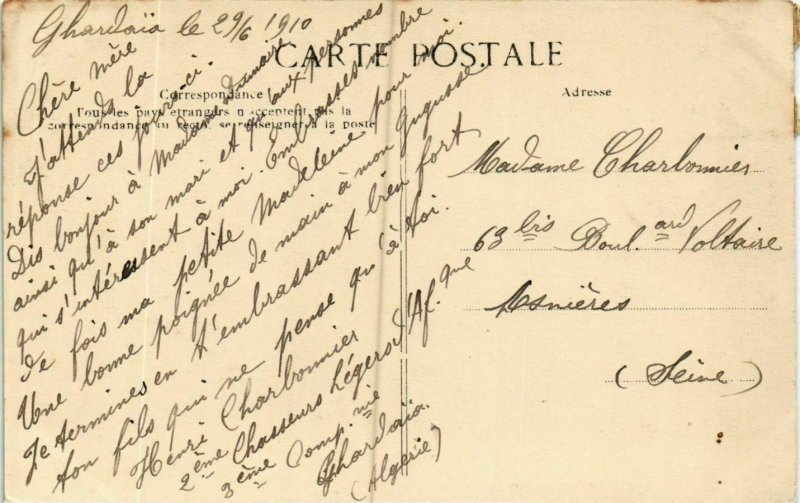 Ghardaïa le 29/6 1910
CARTE POSTALE
Correspondance
Tous les pays étrangers n'acceptent pas la
correspondance au recto, se renseigner à la poste
Adresse
Chère mère
J'attends la
réponse ces jours-ci.
Dis bonjour à Madame
ainsi qu'à son mari et aux personnes
qui s'intéressent à moi. Embrasses nombre
de fois ma petite Madeleine pour moi.
Une bonne poignée de main à mon Gugusse
Je termines en t'embrassant bien fort
ton fils qui ne pense qu'à toi.
Henri Charbonnier
2ème Chasseurs Légers d'Af.que
3ème Comp.nie
Ghardaïa.
(Algérie)
Madame Charbonnier
63 bis Boul.ard Voltaire
Asnières
(Seine)